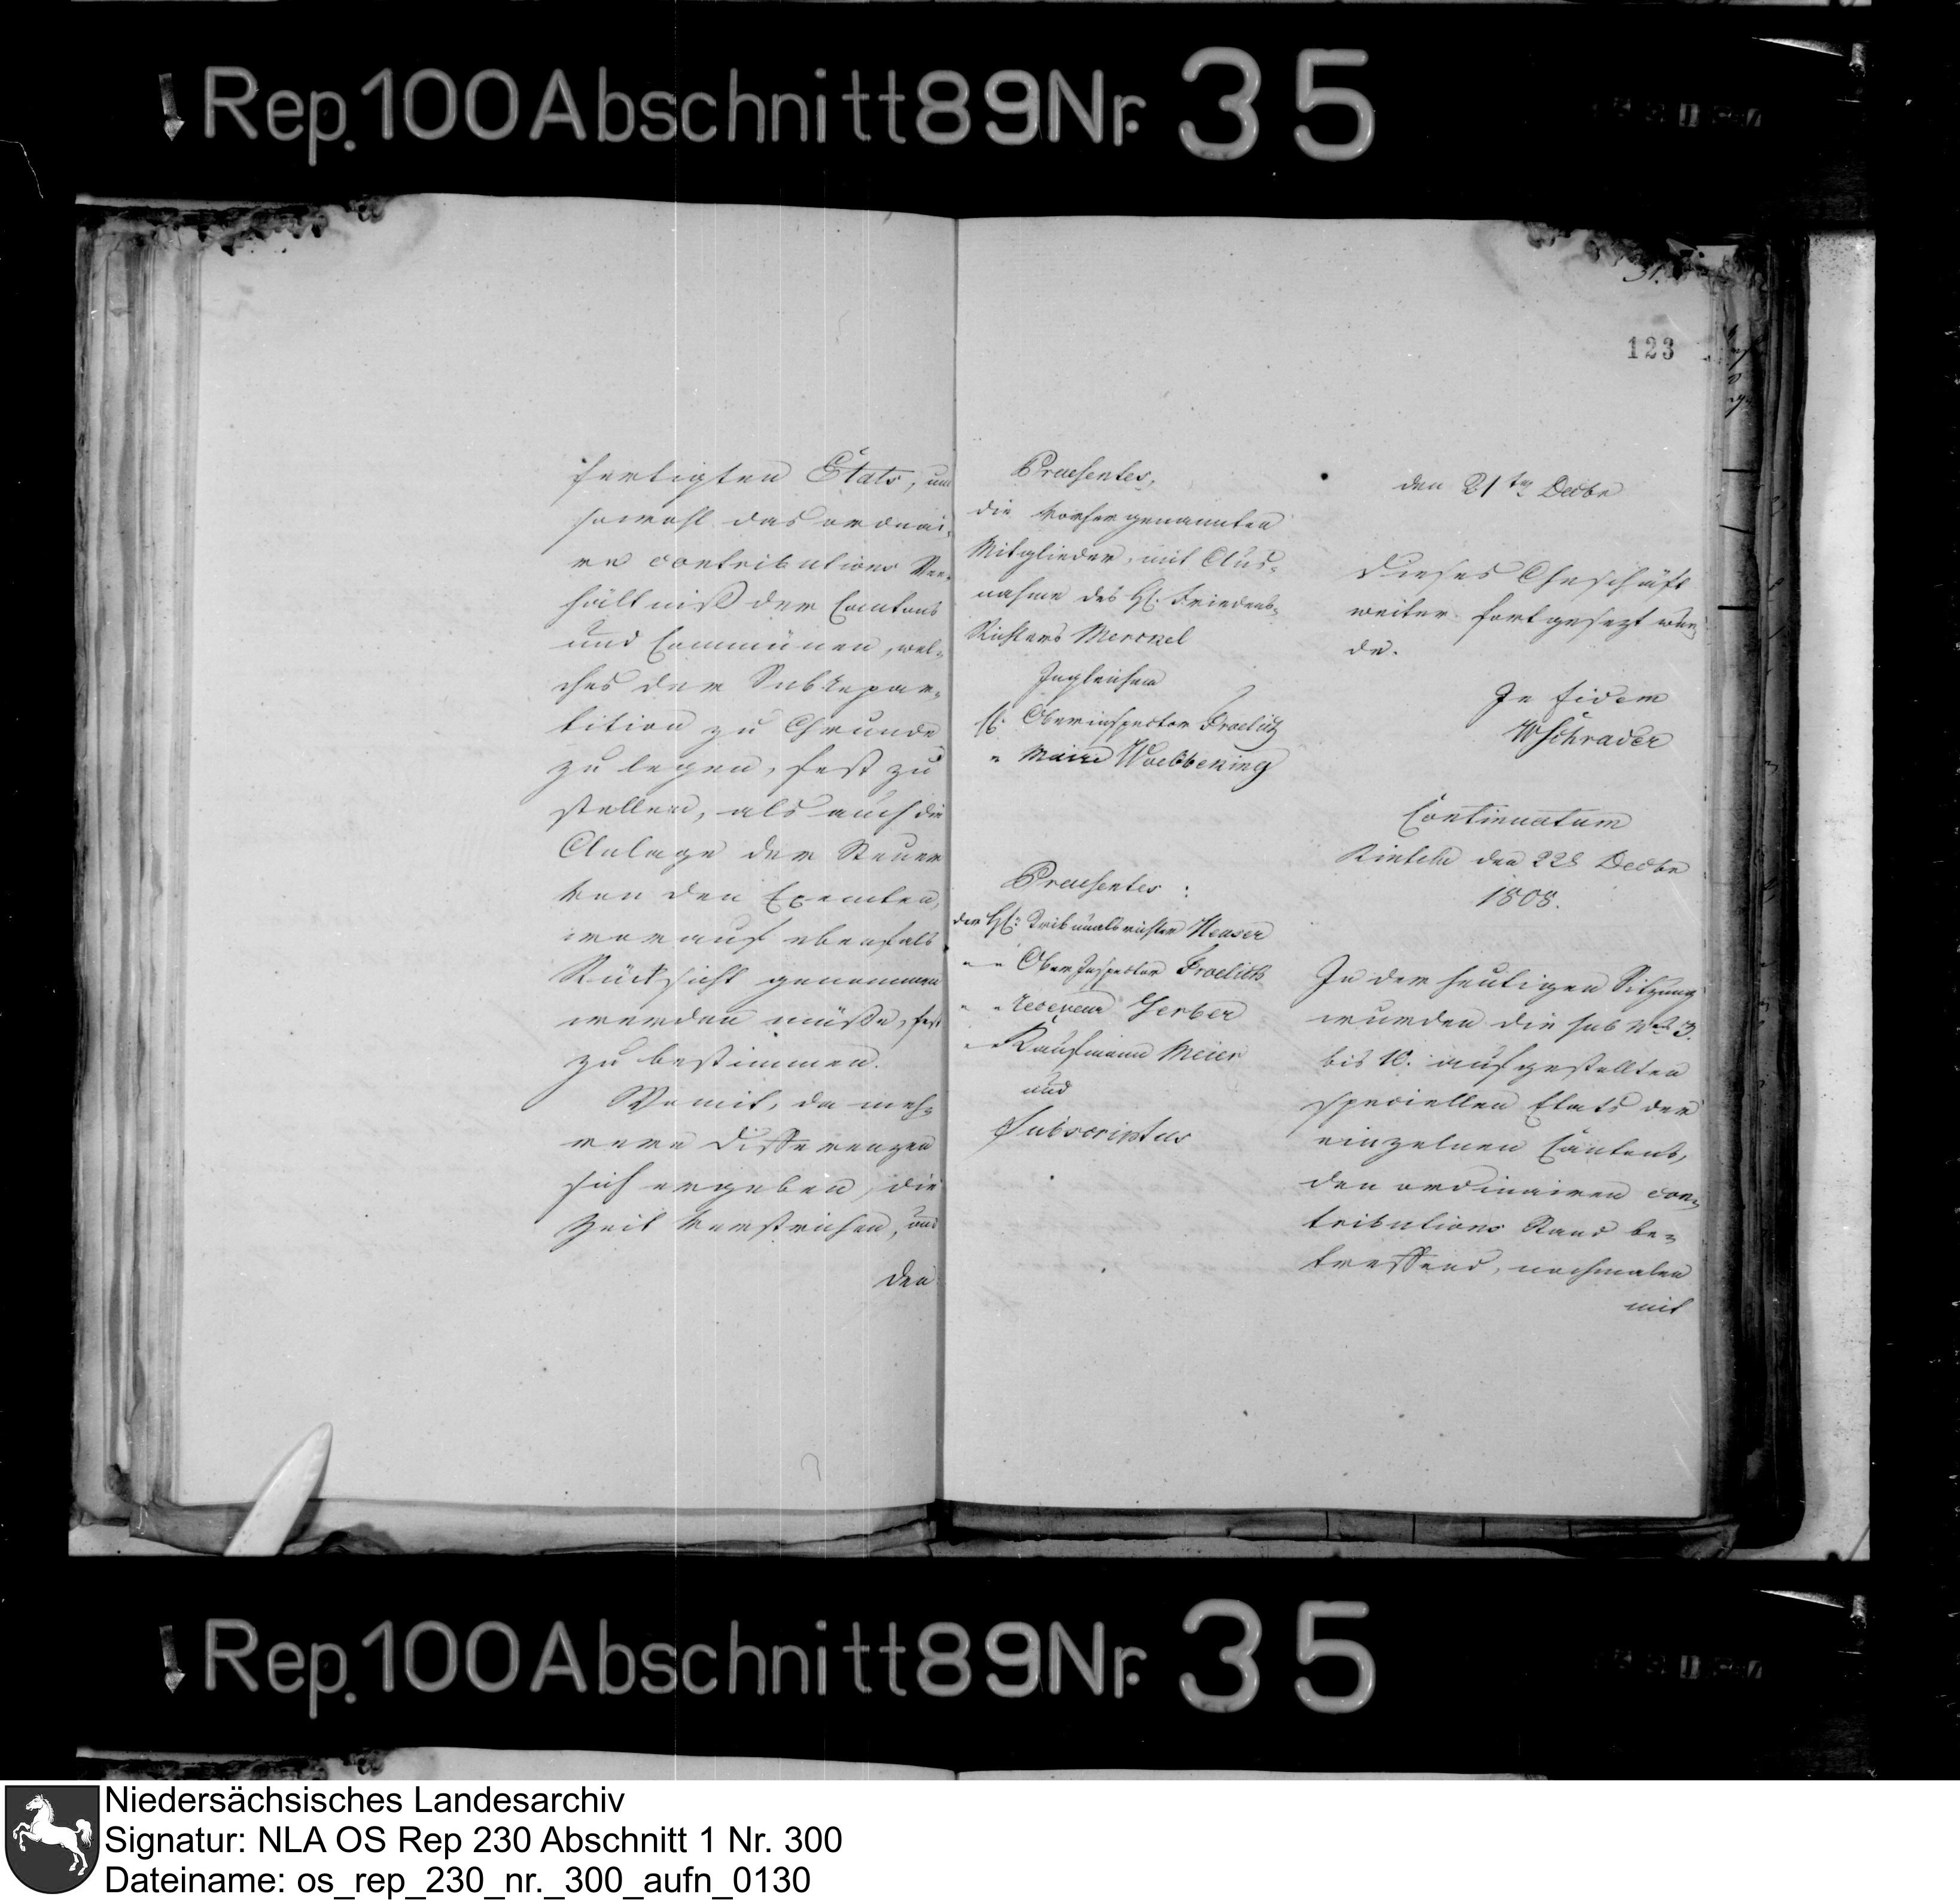 Rep. 100 Abschnitt 89 Nr. 35
fertigten Etats, um
sowohl das ordinai-
re contributions Ver-
hältniß der Cantons
und Communen, wel-
ches der Subrepar-
tition zu Grunde
zu legen, fest zu
stellen, als auch die
Anlage der Steuer
von den Exemten,
worauf ebenfals
Rücksicht genommen
werden müße, fest
zu bestimmen.
Womit, da meh-
rere Differenzen
sich ergeben, die
Zeit verstrichen, und
den
31.
123
Praesentes,
die vorher genannten
Mitglieder, mit Aus-
nahme des H. Friedens-
Richters Merckel
Ingleichen
H. Oberinspector Froelich
" Maire Woebbeking
Praesentes:
der H. Tribunalsrichter Heuser
" " Ober Inspector Froelich
" " Receveur Gerber
" " Kaufmann Meier
und
Subscriptus
den 21ten Decbr
dieses Geschäft
weiter fortgesezt wur-
de.
In fidem
WSchrader
Continuatum
Rinteln den 22t Decbr
1808.
In der heutigen Sitzung
wurden die sub 3.
bis 10. aufgestellten
speciellen Etats der
einzelnen Cantons,
den ordinairen con-
tributions Stand be-
treffend, nochmalen
mit
Rep. 100 Abschnitt 89 Nr. 35
Niedersächsisches Landesarchiv
Signatur: NLA OS Rep 230 Abschnitt 1 Nr. 300
Dateiname: os_rep_230_nr._300_aufn_0130